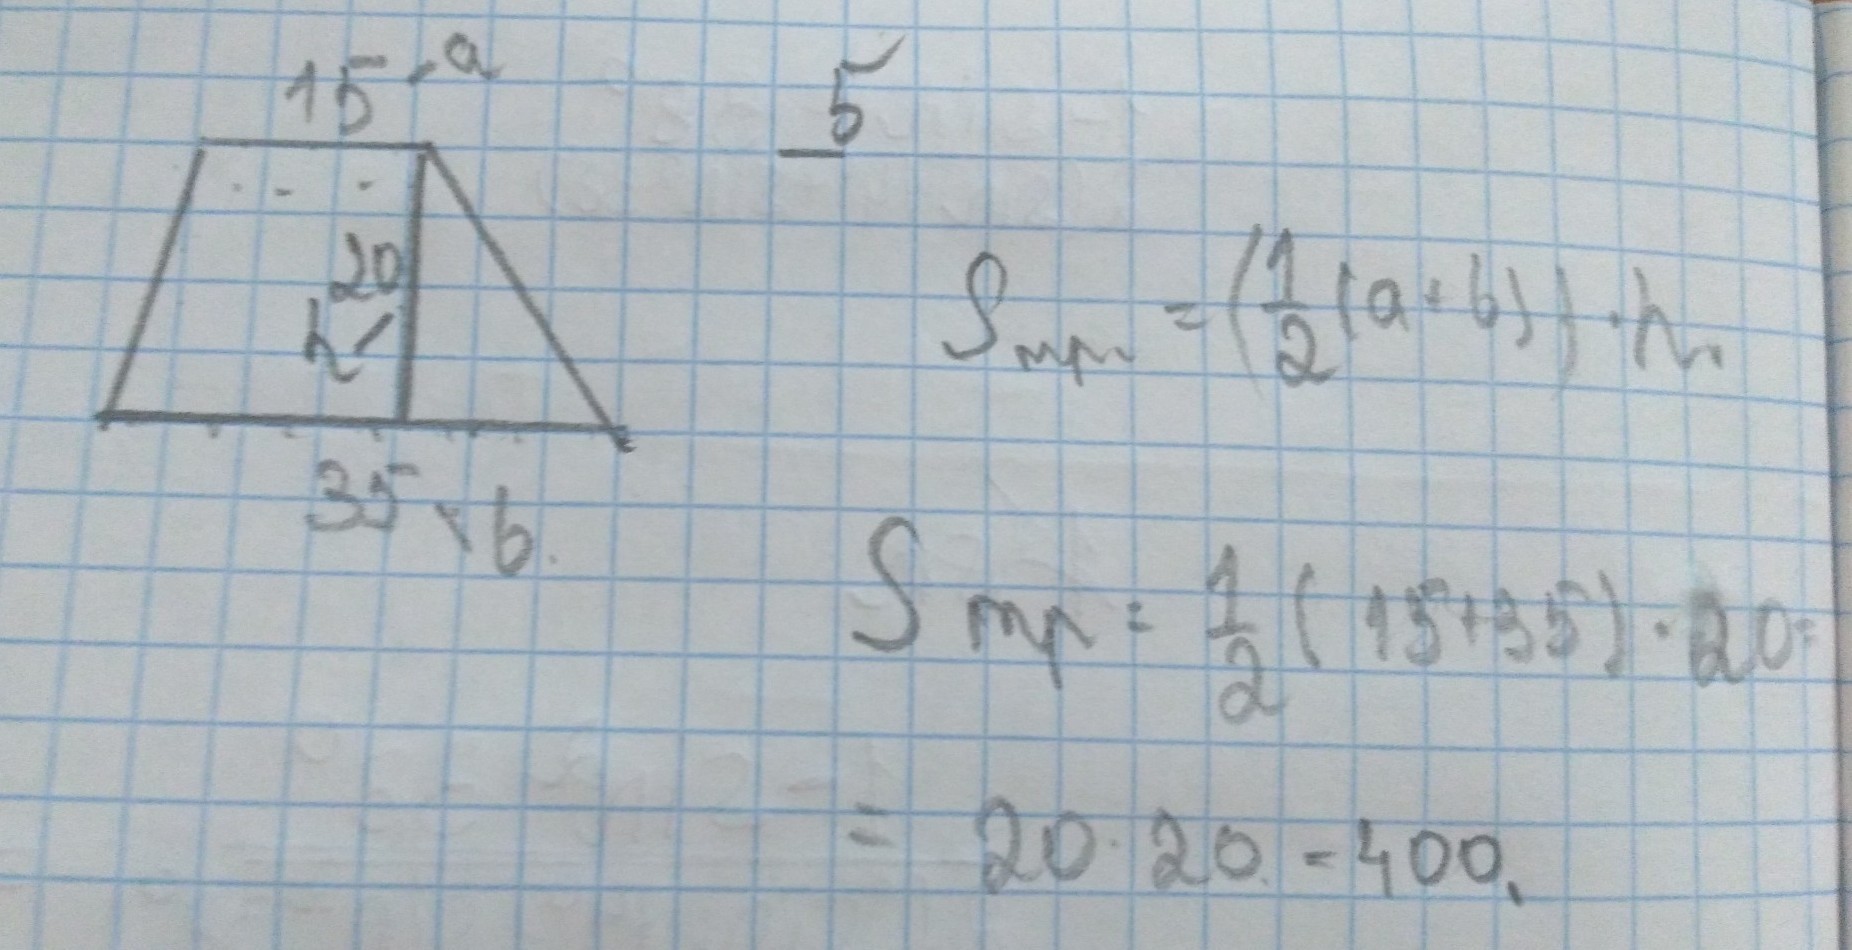 15 a
5
20
h
35 b.
Sтр. = (1/2(a+b)) · h.
Sтр = 1/2 (15+35) · 20=
= 20 · 20 = 400.